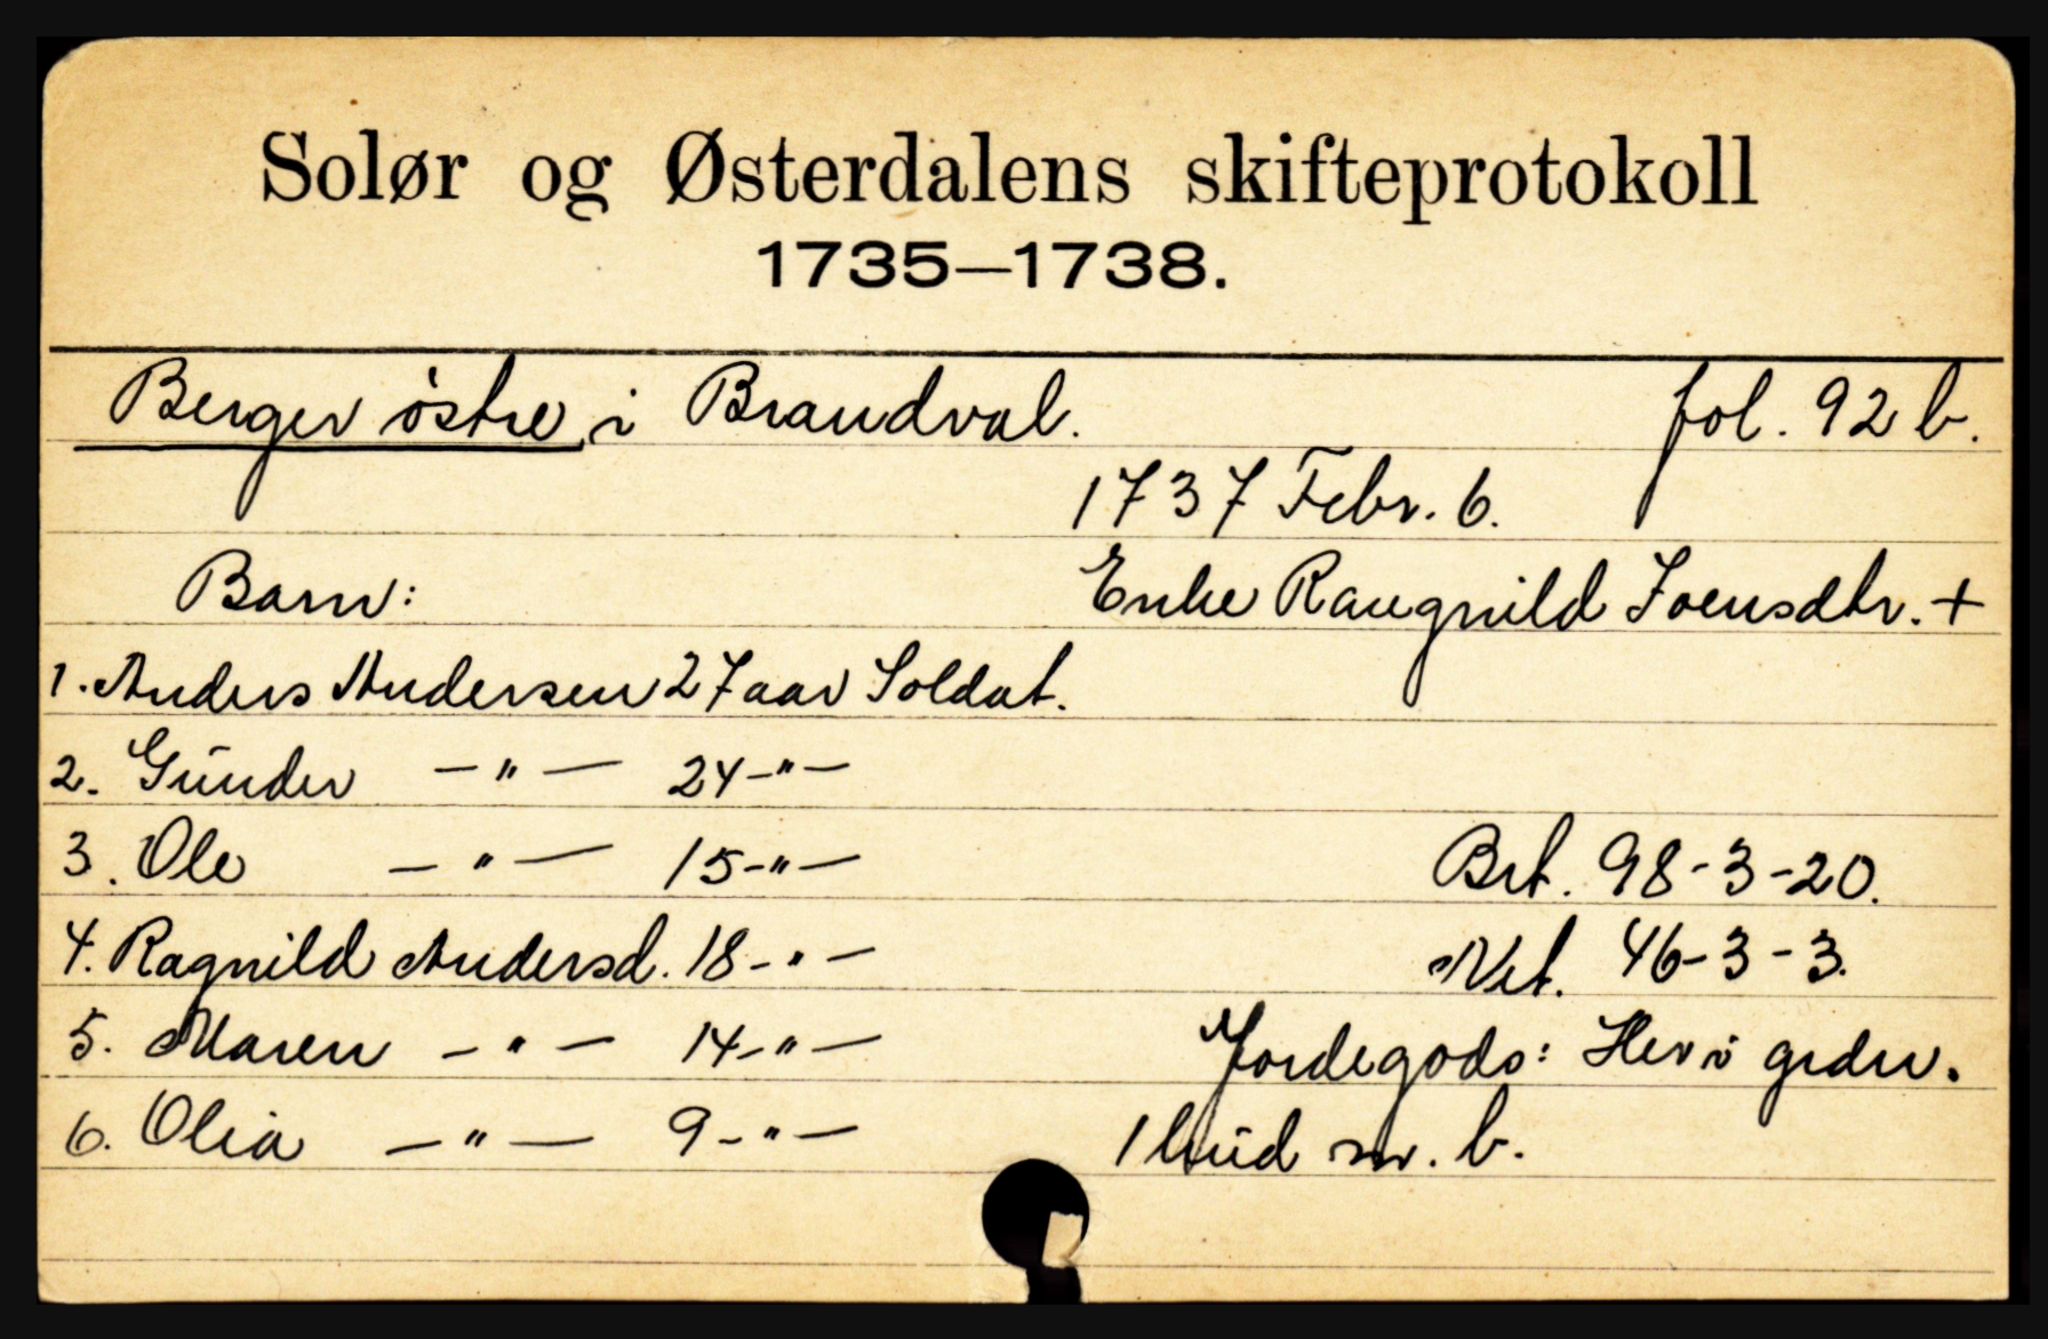 Solør og Østerdalens skifteprotokoll
1735—1738.
Berger østre i Brandval. fol. 92 b.
1737 Febr. 6.
Barn: Enke Raugnild Joensdtr. +
1. Anders Andersen 27 aar Soldat.
2. Günder — " — 24 — " —
3. Ole — " — 15 — " —
Brt. 98-3-20.
4. Ragnild Andersd. 18 — " —
Net. 46-3-3.
5. Maren — " — 14 — " —
Jordegods: Her i grdn.
6. Olia — " — 9 — " —
1 hüd m. b.